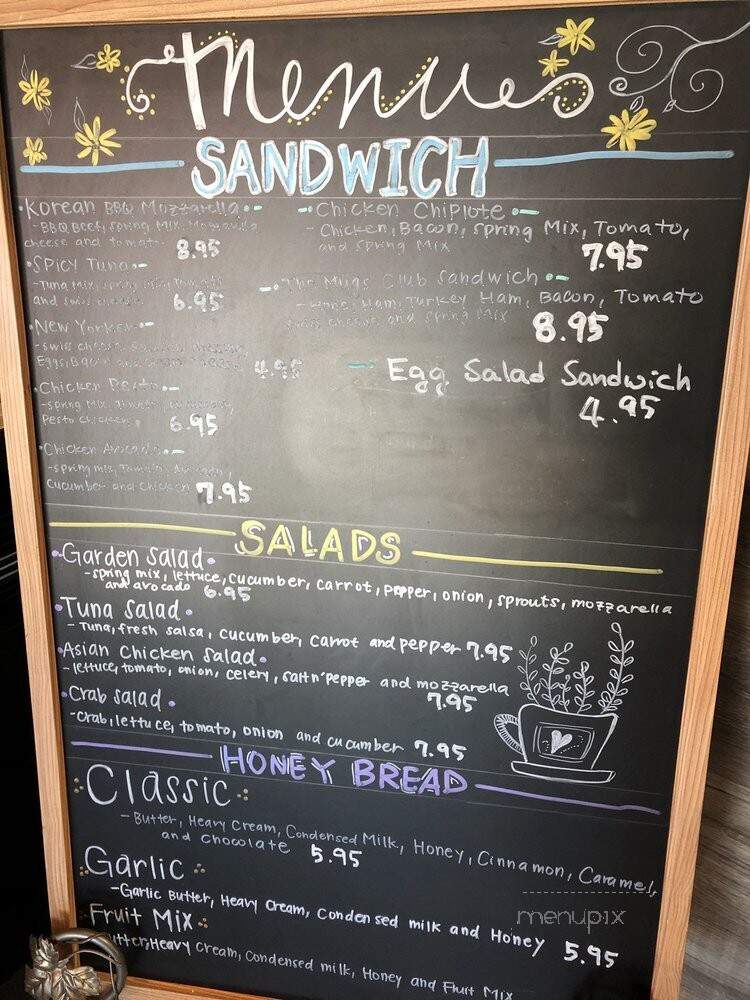 Menues
SANDWICH
Korean BBQ Mozzarella
- BBQ Beef, Spring Mix, Mozzarella
cheese and tomato 8.95
Spicy Tuna
- Tuna mix, spring mix, tomato
and swiss cheese 6.95
New Yorker
- swiss cheese
Eggs, Bacon and 4.95
Chicken Pesto
- spring mix, tomato,
Pesto chicken, 6.95
Chicken Avocado
- spring mix, Tomato, Avocado,
Cucumber and chicken 7.95
Chicken Chiplote
- Chicken, Bacon, Spring Mix, Tomato,
and Spring Mix 7.95
The Mugs Club Sandwich
- Hone Ham, Turkey Ham, Bacon, Tomato
swiss cheese and spring MIX 8.95
Egg Salad Sandwich
4.95
SALADS
Garden Salad
- spring mix, lettuce, cucumber, carrot, pepper, onion, sprouts, mozzarella
and avocado 6.95
Tuna Salad
- Tuna, fresh salsa, cucumber, carrot and pepper 7.95
Asian Chicken Salad
- lettuce, tomato, onion, celery, salt n' pepper and mozzarella
7.95
Crab salad
- crab, lettuce, tomato, onion and cucumber 7.95
HONEY BREAD
Classic
- Butter, Heavy Cream, Condensed Milk, Honey, Cinnamon, Caramel,
and chocolate 5.95
Garlic
- Garlic Butter, Heavy Cream, Condensed milk and Honey 5.95
Fruit Mix
Butter, Heavy Cream, Condensed milk, Honey and Fruit Mix
menupix